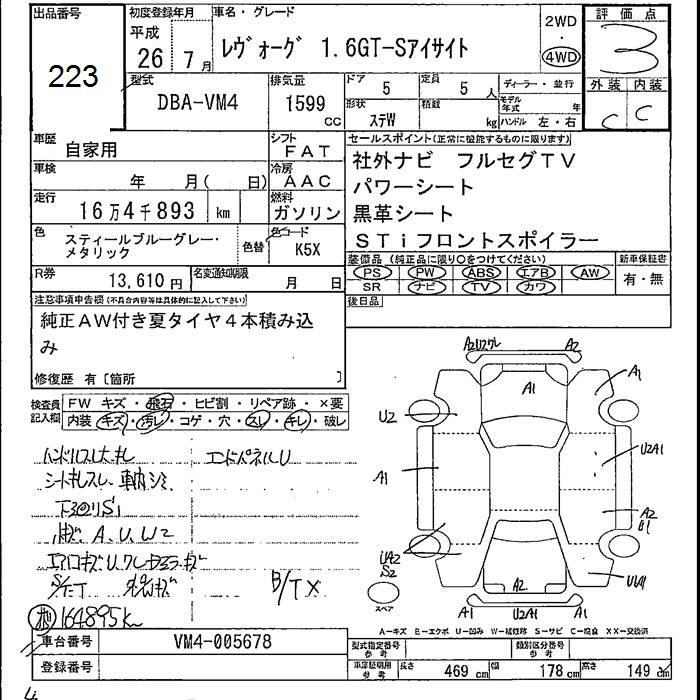 出品番号
223
初度登録年月
平成
26 年 7 月
車名・グレード
レヴォーグ 1.6GT-Sアイサイト
2WD
・
4WD
評価点
3
外装 内装
C C
型式
DBA-VM4
排気量
1599 CC
ドア 5
定員 5 人
形状 ステW
積載 kg
ディーラー・並行
モデル年式 年
ハンドル 左・右
車歴 自家用
シフト FAT
車検 年 月( 日)
冷房 AAC
走行 16万4千893 km
燃料 ガソリン
色 スティールブルーグレー・メタリック
色替
色コード K5X
R券 13,610円
名変通知期限 月 日
セールスポイント(正常に機能するものに限ります)
社外ナビ フルセグTV
パワーシート
黒革シート
STiフロントスポイラー
装備品 (純正品に限り○をつけてください)
PS PW ABS エアB AW
SR ナビ TV カワ
新車保証書
有・無
後日品
注意事項申告欄(不具合内容等は具体的に記入して下さい)
純正AW付き夏タイヤ4本積み込
み
修復歴 有[箇所 ]
検査員記入欄
FW キズ・飛石・ヒビ割・リペア跡・×要
内装 キズ・汚レ・コゲ・穴・スレ・キレ・破レ
エンドパネルU
シートキレスレ
下廻りS1
A、U、W2
B/TX
164895K
A2
A1
A1
U2
A1
U2A1
A2
U1
UA2
S2
スペア
A2
A1 U2A1 A1
A-キズ E-エクボ U-凹み W-補修跡 S-サビ C-腐食 XX-交換済
車台番号 VM4-005678
登録番号
型式指定番号 参考
類別区分番号 参考
車庫証明用 参考
長さ 469 cm
幅 178 cm
高さ 149 cm